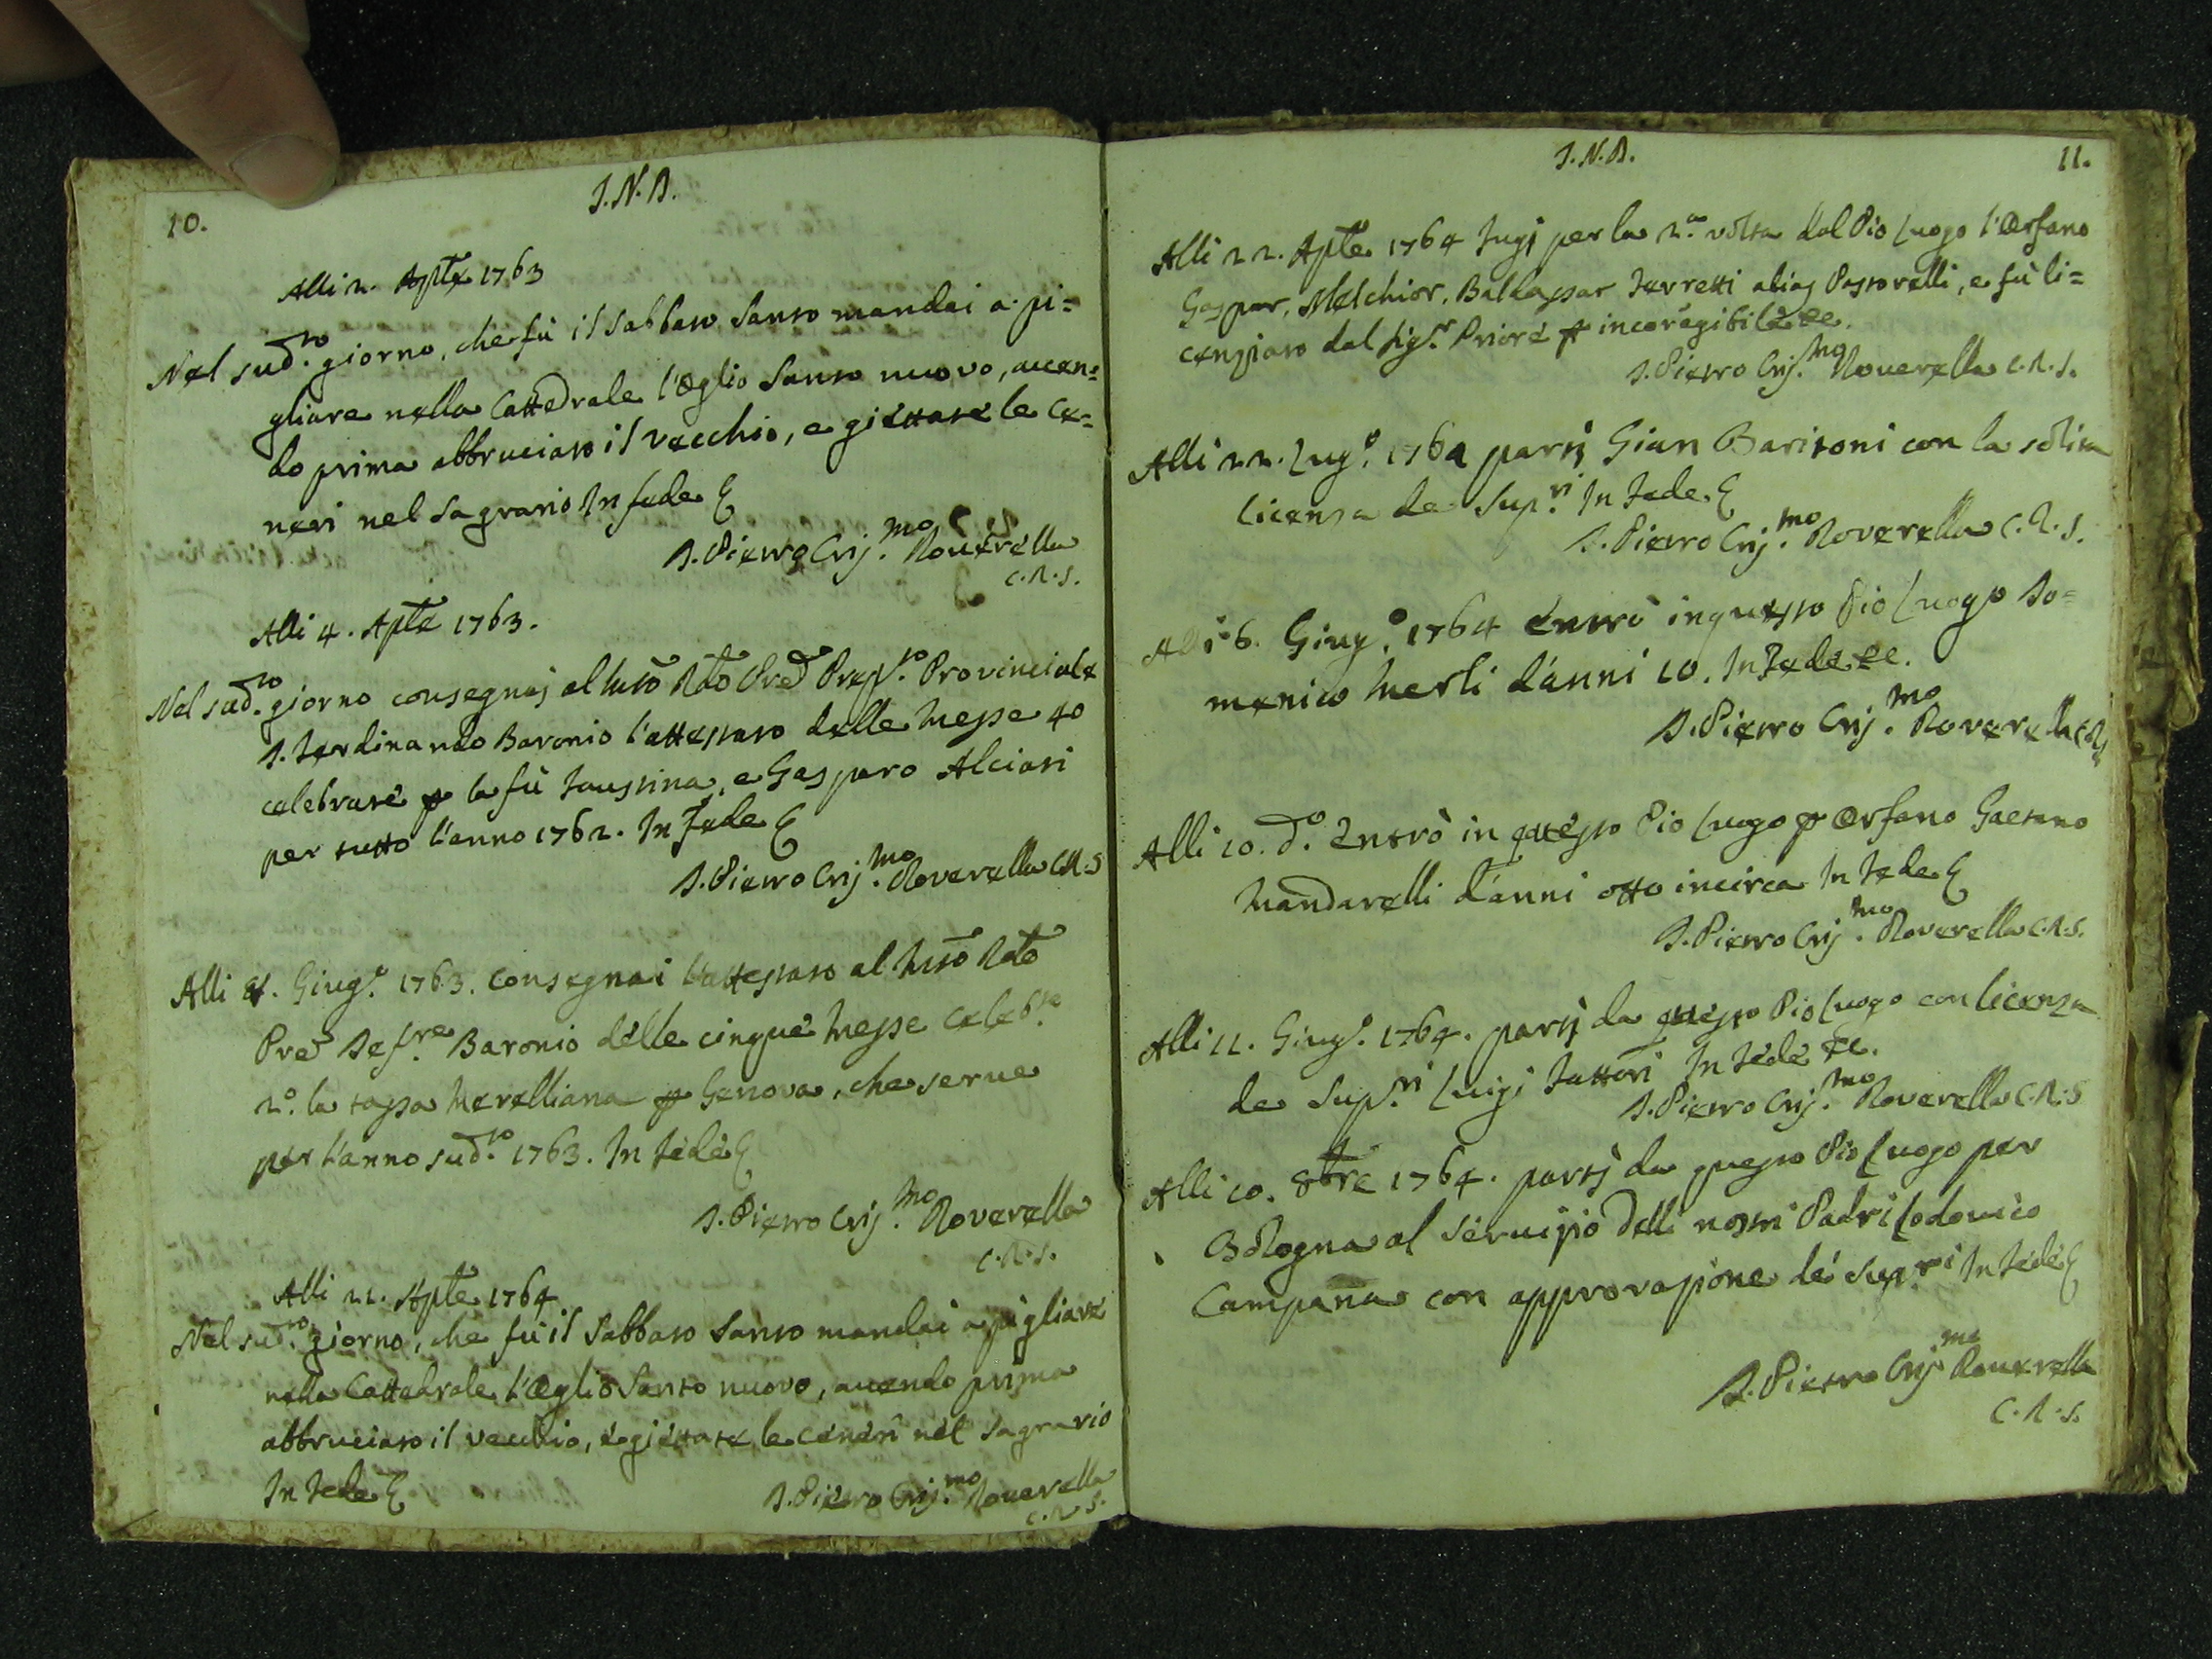 10.
J.N.D.
Alli 2. Aple 1763
Nel sud.to giorno, che fù il Sabbato Santo mandai a pi=
gliare nella Cattedrale l'Oglio Santo nuovo, aven=
do prima abbruciato il vecchio, e giettate le ce=
neri nel Sagrario In fede
D. Pietro Crij.mo Rouerella
C.R.S.
Alli 4. Aple 1763.
Nel sud.to giorno consegnaj al Mto Rdo Pred Prep.to Provinciale
D. Ferdinando Baronio l'attestato delle Messe 40
celebrate p la fù Faustina, e Gasparo Alciati
per tutto l'anno 1762. In fede
D. Pietro Crij.mo Roverella C.R.S
Alli Giug.o 1763. consegnai l'attestato al Mto Rdo
Pred Baronio delle cinque Messe celeb.te
2.o la tassa Merelliana p Genova, che serue
per l'anno sud.to 1763. In fede
D. Pietro Crij.mo Roverella
C.R.S.
Alli 21. Aple 1764
Nel sud.to giorno, che fù il Sabbato Santo mandai a pigliare
nella Cattedrale l'Oglio Santo nuovo, auendo prima
abbruciato il vecchio, e giettate le ceneri nel Sagrario
In fede
D. Pietro Crij.mo Rouerella
C.R.S.
J.N.D.
11.
Alli 22. Aple 1764 fugj per la 2.a volta dal Pio Luogo l'Orfano
Gaspar, Melchior, Baldassar Ferretti alias Pastorelli, e fù li=
cenziato dal Sig.r Priore p incoregibile ec.
D. Pietro Crij.mo Rouerella C.R.S.
Alli 22. Lug.o 1764 partj Gian Baritoni con la solita
licenza de Sup.ri In fede
D. Pietro Crij.mo Roverella C.R.S.
Alli 6. Giug.o 1764 Entrò in questo Pio Luogo Do=
menico Merli d'anni 10. In fede ec.
D. Pietro Crij.mo Roverella C.R.S
Alli 10. d.o Entrò in questo Pio Luogo p Orfano Gaetano
Mandarelli d'anni otto incirca In fede
D. Pietro Crij.mo Roverella C.R.S.
Alli 11. Giug.o 1764. partj da questo Pio Luogo con licenza
de Sup.ri Luigi Fattori In fede ec.
D. Pietro Crij.mo Roverella C.R.S
Alli 10. 8bre 1764. partj da questo Pio Luogo per
Bologna al servizio delli nostri Padri Lodouico
Campana con approvazione de' Sup.ri In fede
D. Pietro Crij.mo Rouerella
C.R.S.